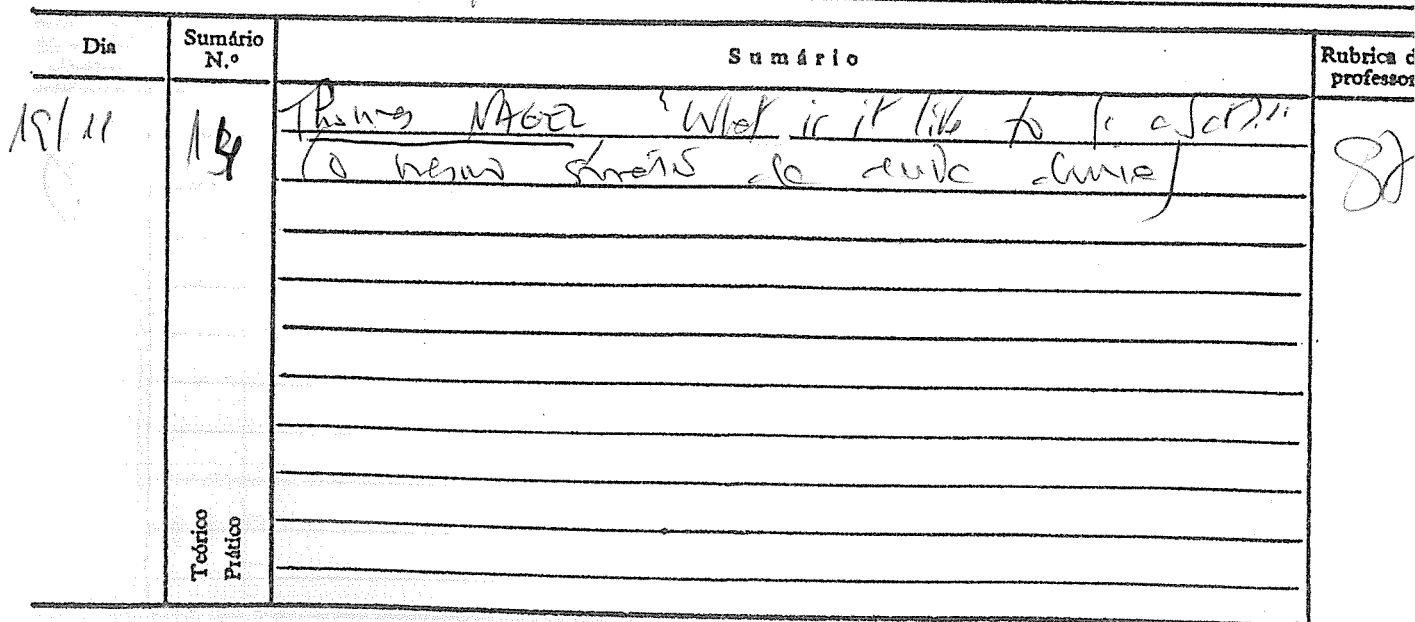 Dia
Sumário N.º
Sumário
Rubrica d
professor
19/11
Thomas NAGEL "What is it like to be a bat?"
(o mesmo sumário da aula
Teórico
Prático